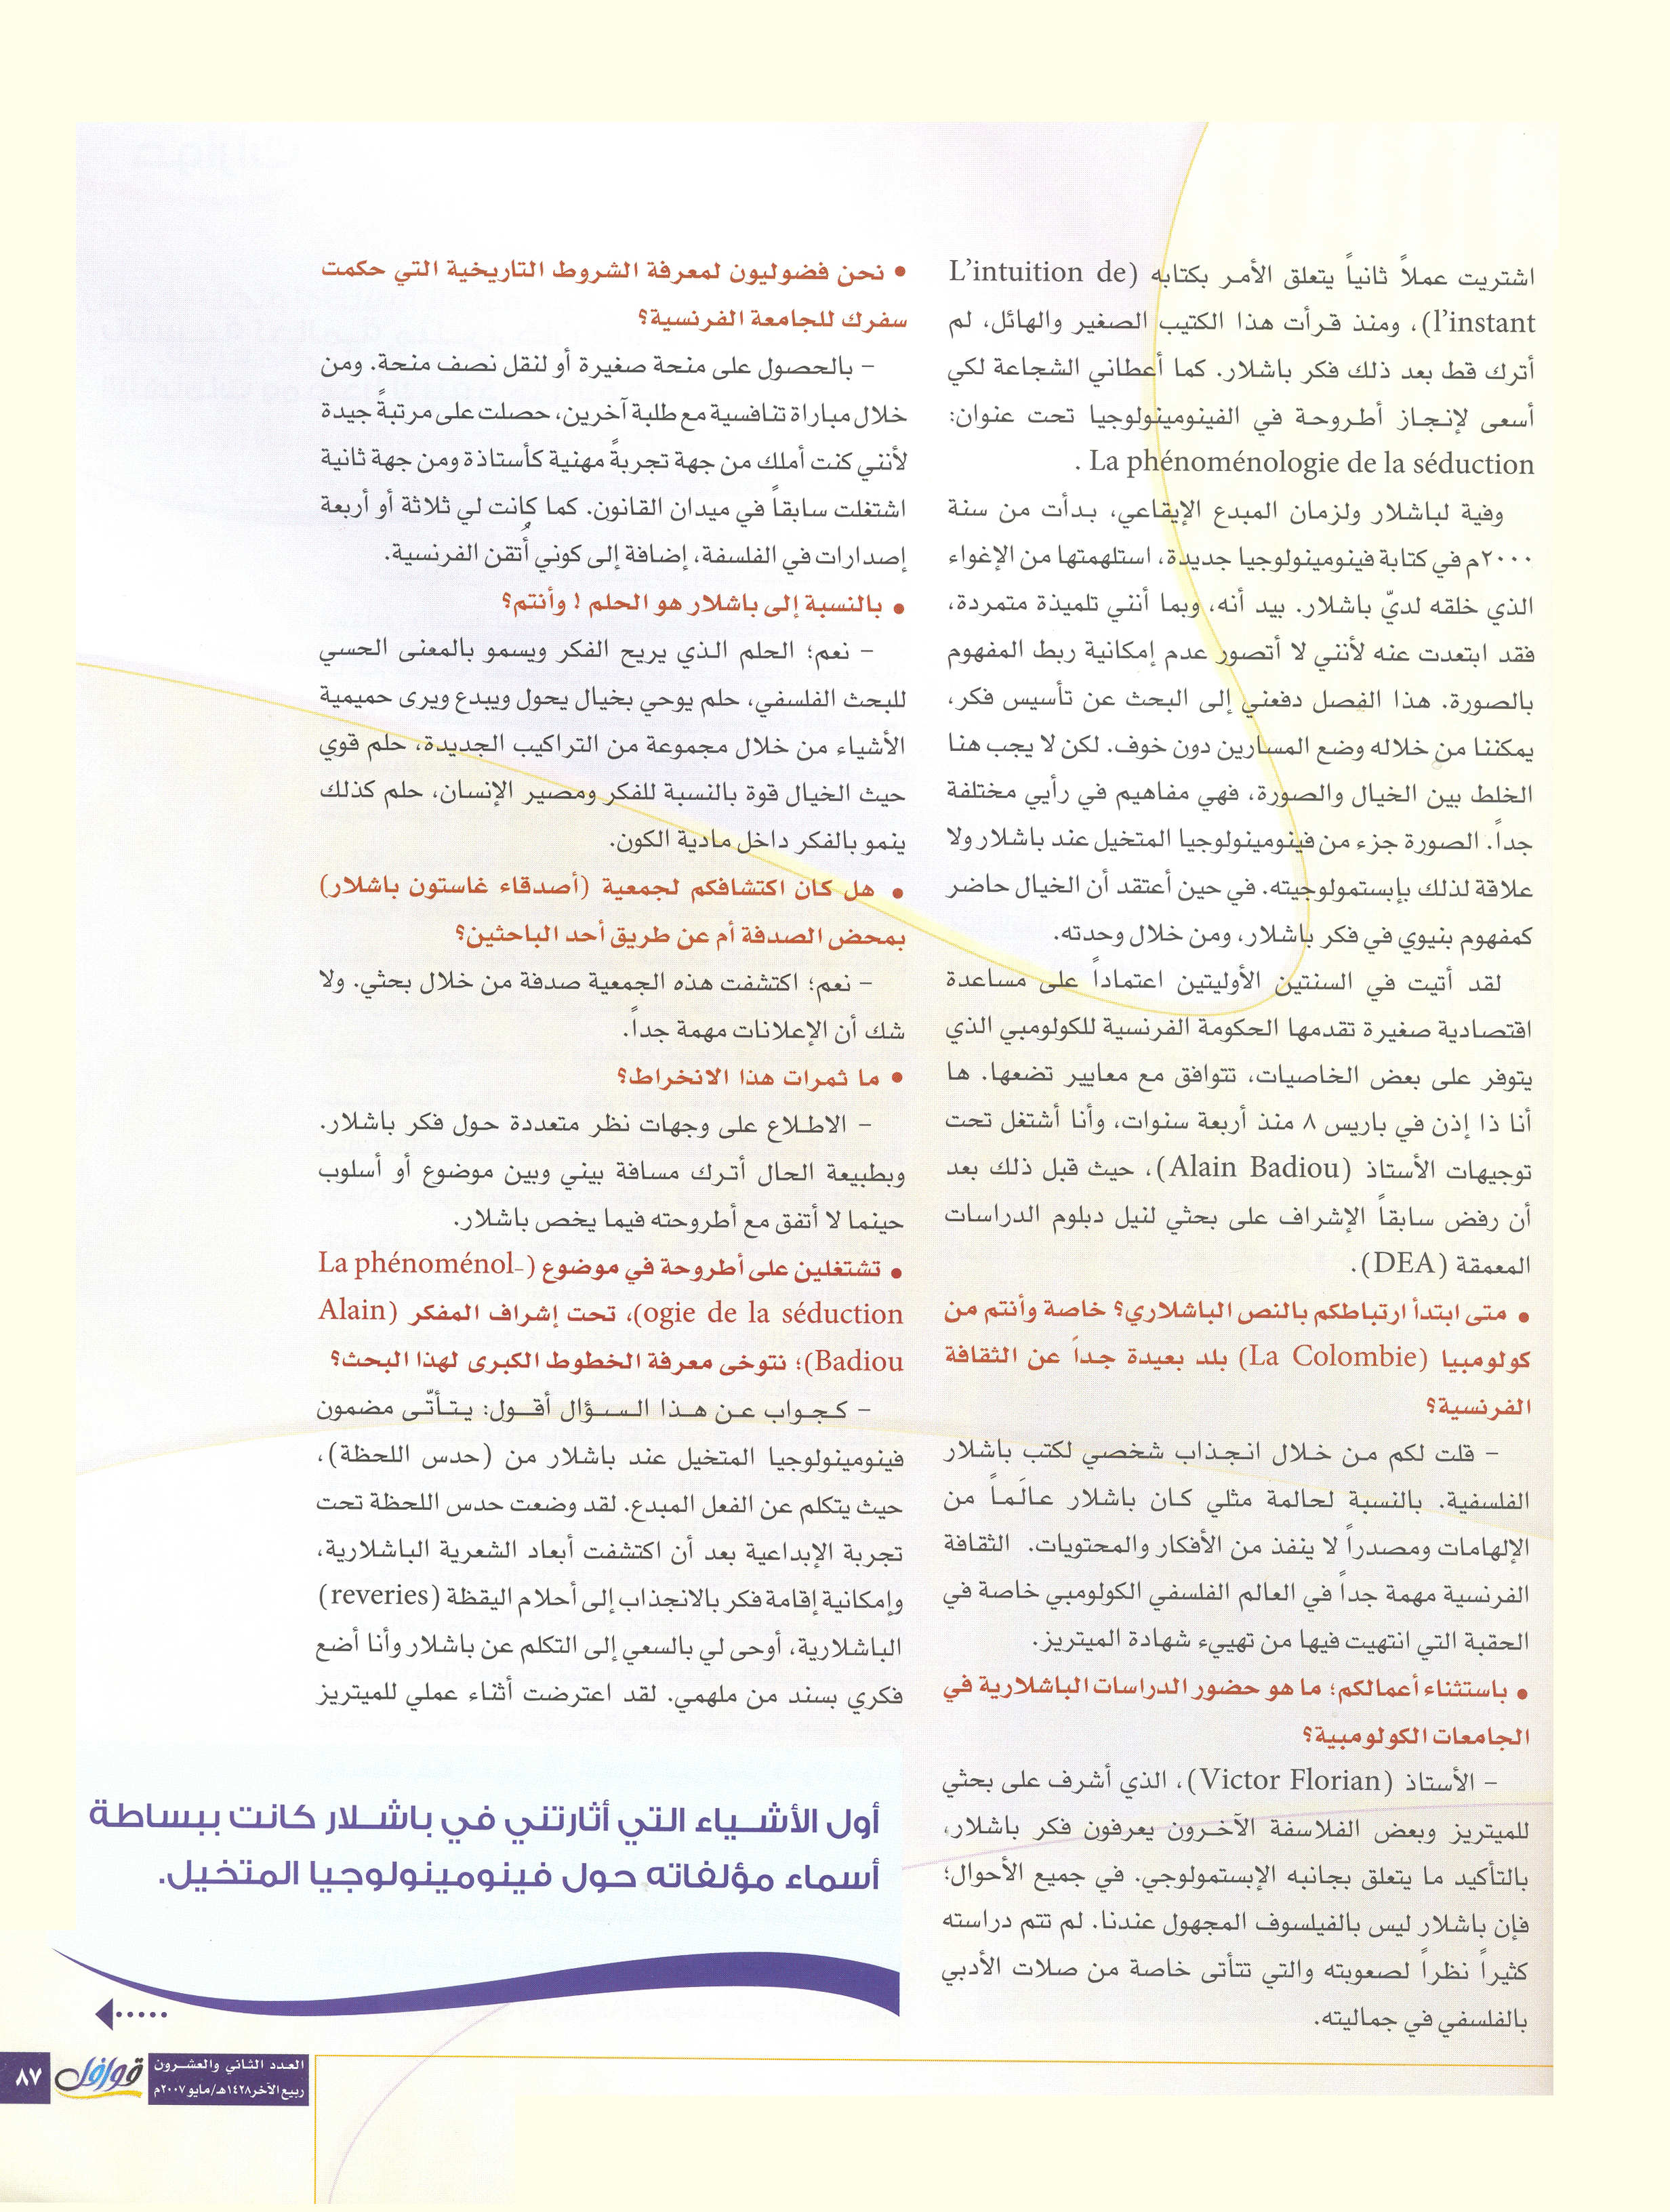 اشتريت عملاً ثانياً يتعلق الأمر بكتابه (L'intuition de
l'instant)، ومنذ قرأت هذا الكتيب الصغير والهائل، لم
أترك قط بعد ذلك فكر باشلار. كما أعطاني الشجاعة لكي
أسعى لإنجاز أطروحة في الفينومينولوجيا تحت عنوان:
La phénoménologie de la séduction .
وفية لباشلار ولزمان المبدع الإيقاعي، بدأت من سنة
٢٠٠٠م في كتابة فينومينولوجيا جديدة، استلهمتها من الإغواء
الذي خلقه لديّ باشلار. بيد أنه، وبما أنني تلميذة متمردة،
فقد ابتعدت عنه لأنني لا أتصور عدم إمكانية ربط المفهوم
بالصورة. هذا الفصل دفعني إلى البحث عن تأسيس فكر،
يمكننا من خلاله وضع المسارين دون خوف. لكن لا يجب هنا
الخلط بين الخيال والصورة، فهي مفاهيم في رأيي مختلفة
جداً. الصورة جزء من فينومينولوجيا المتخيل عند باشلار ولا
علاقة لذلك بإبستمولوجيته. في حين أعتقد أن الخيال حاضر
كمفهوم بنيوي في فكر باشلار، ومن خلال وحدته.
لقد أتيت في السنتين الأوليتين اعتماداً على مساعدة
اقتصادية صغيرة تقدمها الحكومة الفرنسية للكولومبي الذي
يتوفر على بعض الخاصيات، تتوافق مع معايير تضعها. ها
أنا ذا إذن في باريس ٨ منذ أربعة سنوات، وأنا أشتغل تحت
توجيهات الأستاذ (Alain Badiou)، حيث قبل ذلك بعد
أن رفض سابقاً الإشراف على بحثي لنيل دبلوم الدراسات
المعمقة (DEA).
• متى ابتدأ ارتباطكم بالنص الباشلاري؟ خاصة وأنتم من
كولومبيا (La Colombie) بلد بعيدة جداً عن الثقافة
الفرنسية؟
– قلت لكم من خلال انجذاب شخصي لكتب باشلار
الفلسفية. بالنسبة لحالمة مثلي كان باشلار عالَماً من
الإلهامات ومصدراً لا ينفذ من الأفكار والمحتويات. الثقافة
الفرنسية مهمة جداً في العالم الفلسفي الكولومبي خاصة في
الحقبة التي انتهيت فيها من تهييء شهادة الميتريز.
• باستثناء أعمالكم؛ ما هو حضور الدراسات الباشلارية في
الجامعات الكولومبية؟
– الأستاذ (Victor Florian)، الذي أشرف على بحثي
للميتريز وبعض الفلاسفة الآخرون يعرفون فكر باشلار،
بالتأكيد ما يتعلق بجانبه الإبستمولوجي. في جميع الأحوال؛
فإن باشلار ليس بالفيلسوف المجهول عندنا. لم تتم دراسته
كثيراً نظراً لصعوبته والتي تتأتى خاصة من صلات الأدبي
بالفلسفي في جماليته.
• نحن فضوليون لمعرفة الشروط التاريخية التي حكمت
سفرك للجامعة الفرنسية؟
– بالحصول على منحة صغيرة أو لنقل نصف منحة. ومن
خلال مباراة تنافسية مع طلبة آخرين، حصلت على مرتبةً جيدة
لأنني كنت أملك من جهة تجربةً مهنية كأستاذة ومن جهة ثانية
اشتغلت سابقاً في ميدان القانون. كما كانت لي ثلاثة أو أربعة
إصدارات في الفلسفة، إضافة إلى كوني أُتقن الفرنسية.
• بالنسبة إلى باشلار هو الحلم ! وأنتم؟
– نعم؛ الحلم الذي يريح الفكر ويسمو بالمعنى الحسي
للبحث الفلسفي، حلم يوحي بخيال يحول ويبدع ويرى حميمية
الأشياء من خلال مجموعة من التراكيب الجديدة، حلم قوي
حيث الخيال قوة بالنسبة للفكر ومصير الإنسان، حلم كذلك
ينمو بالفكر داخل مادية الكون.
• هل كان اكتشافكم لجمعية (أصدقاء غاستون باشلار)
بمحض الصدفة أم عن طريق أحد الباحثين؟
– نعم؛ اكتشفت هذه الجمعية صدفة من خلال بحثي. ولا
شك أن الإعلانات مهمة جداً.
• ما ثمرات هذا الانخراط؟
– الاطلاع على وجهات نظر متعددة حول فكر باشلار.
وبطبيعة الحال أترك مسافة بيني وبين موضوع أو أسلوب
حينما لا أتفق مع أطروحته فيما يخص باشلار.
• تشتغلين على أطروحة في موضوع (La phénoménol-
ogie de la séduction)، تحت إشراف المفكر (Alain
Badiou)؛ نتوخى معرفة الخطوط الكبرى لهذا البحث؟
– كجواب عن هذا السؤال أقول: يتأتّى مضمون
فينومينولوجيا المتخيل عند باشلار من (حدس اللحظة)،
حيث يتكلم عن الفعل المبدع. لقد وضعت حدس اللحظة تحت
تجربة الإبداعية بعد أن اكتشفت أبعاد الشعرية الباشلارية،
وإمكانية إقامة فكر بالانجذاب إلى أحلام اليقظة (reveries)
الباشلارية، أوحى لي بالسعي إلى التكلم عن باشلار وأنا أضع
فكري بسند من ملهمي. لقد اعترضت أثناء عملي للميتريز
أول الأشياء التي أثارتني في باشلار كانت ببساطة
أسماء مؤلفاته حول فينومينولوجيا المتخيل.
العدد الثاني والعشرون
ربيع الآخر١٤٢٨هـ/مايو٢٠٠٧م
قوافل
٨٧